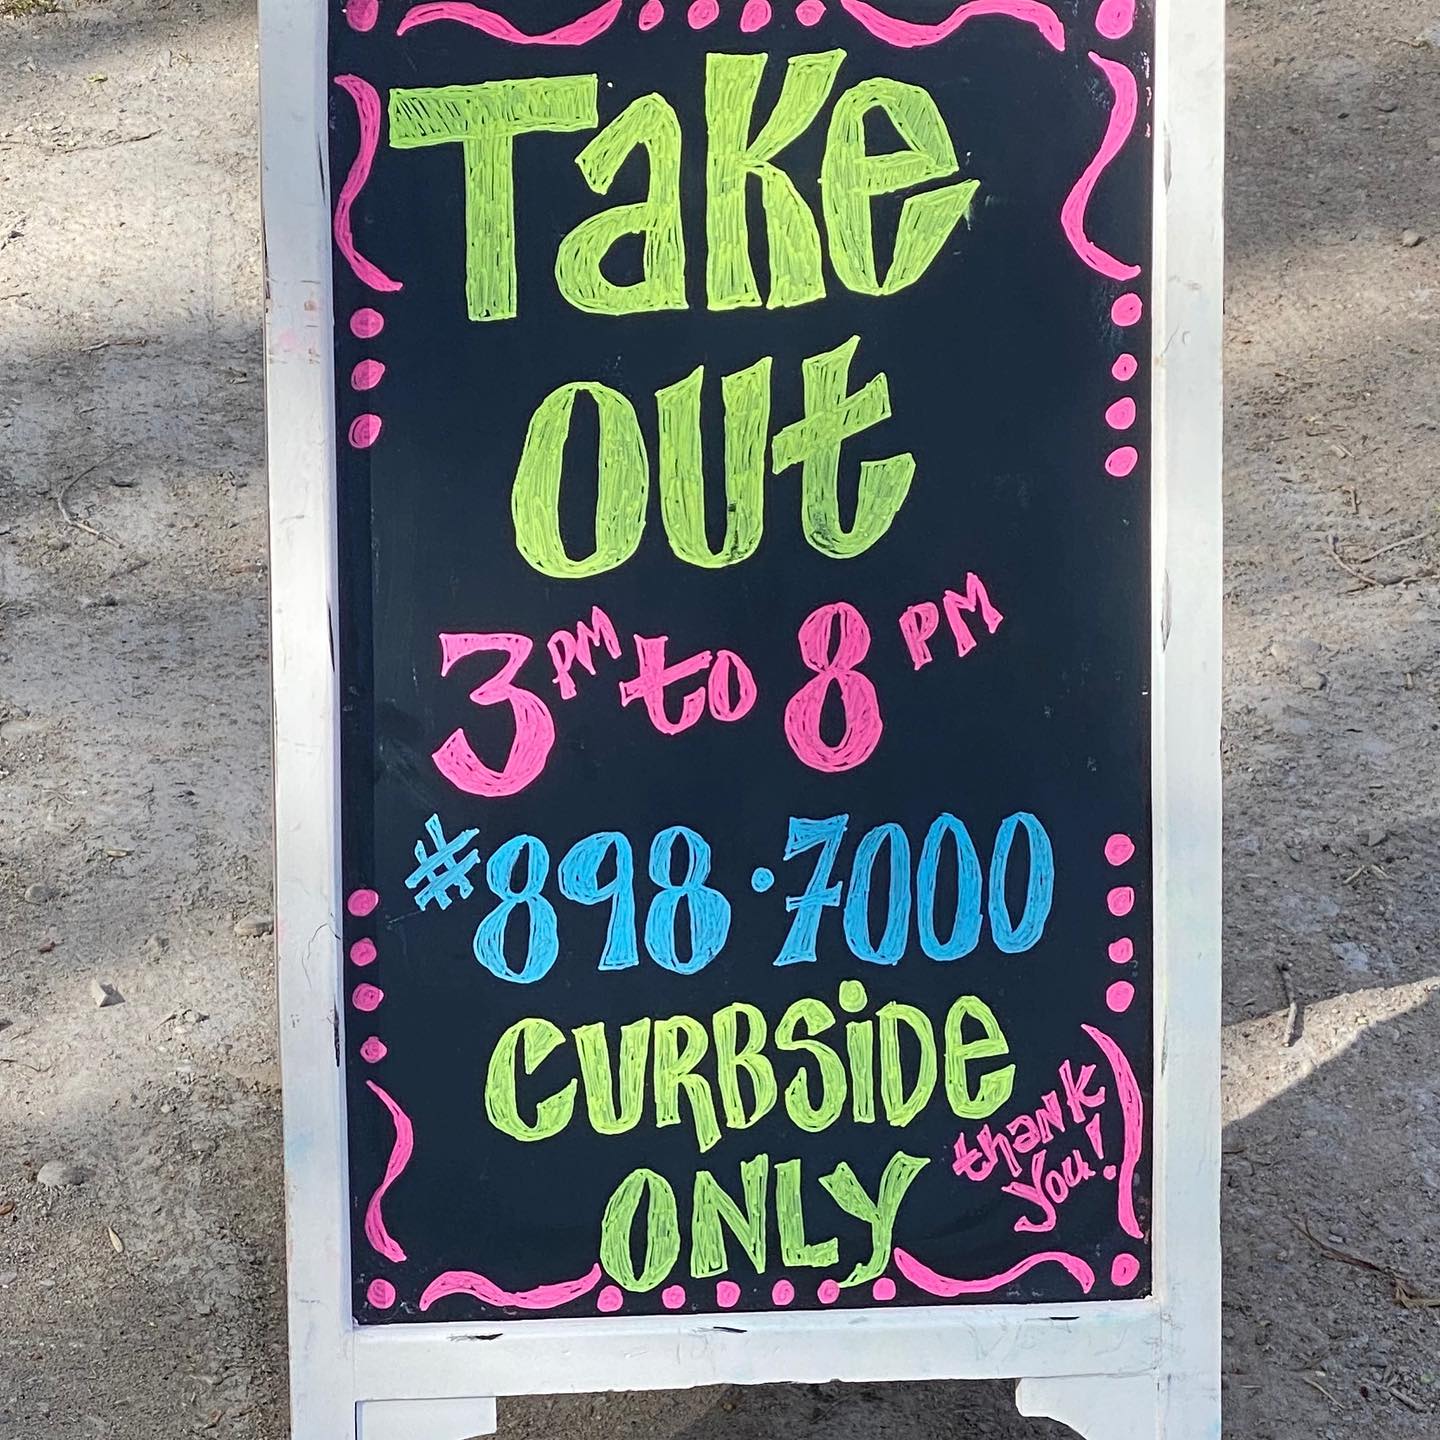 Take
out
3PM to 8PM
#898·7000
CURBSiDe
ONLY
thank
you!